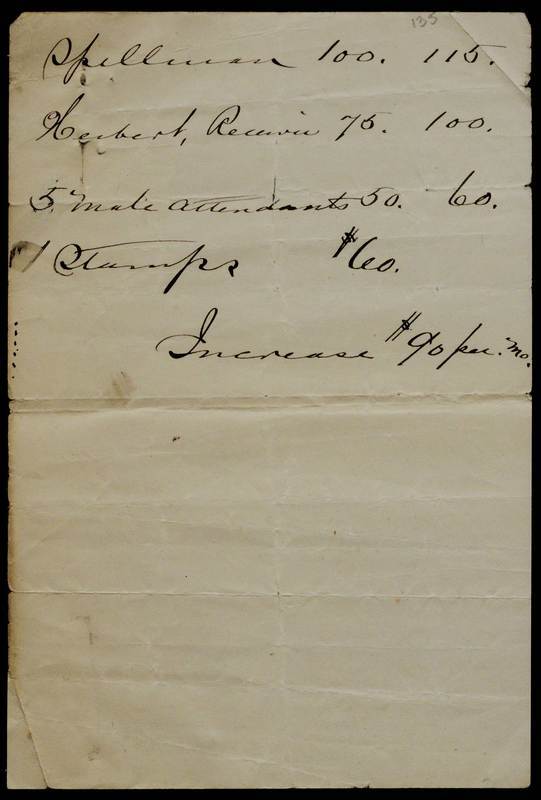 135
Spellman 100. 115.
Herbert, Receiver 75. 100.
5 Male Attendants 50. 60.
1 Stamps $60.
Increase $90 per. mo.